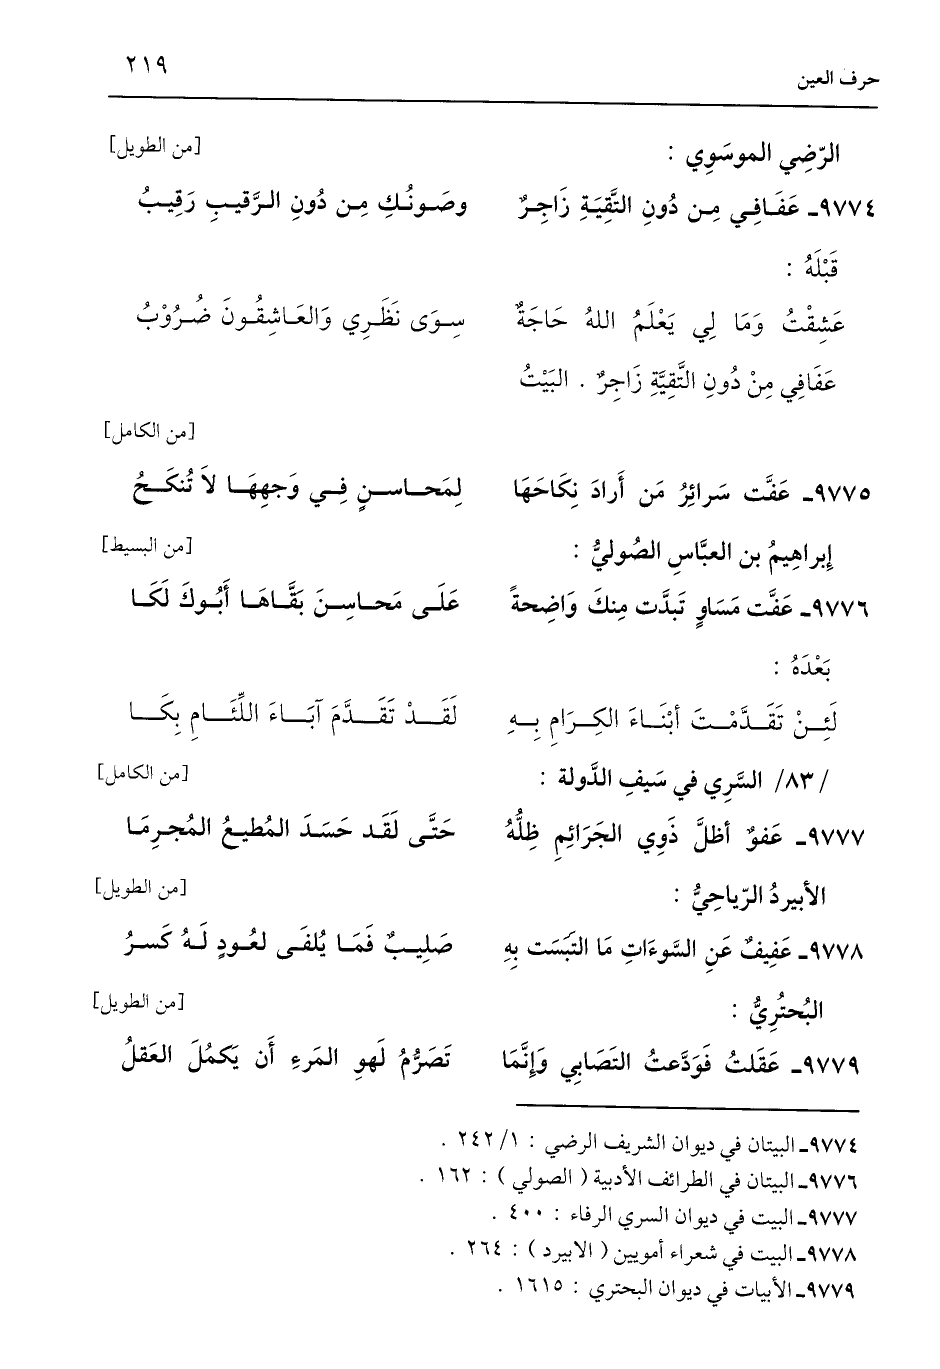 حرف العين ٢١٩
الرّضِي الموسَوِي : [من الطويل]
٩٧٧٤ـ عَفَـافِـي مِـن دُونِ التَّقِيَـةِ زَاجِـرٌ وصَـونُـكِ مِـن دُونِ الـرَّقيـبِ رَقِيـبُ
قَبْلَهُ :
عَشِقْتُ وَمَا لِي يَعْلَمُ اللهُ حَاجَةٌ سِـوَى نَظَرِي وَالعَـاشِقُـونَ ضُـرُوْبُ
عَفَافِي مِنْ دُونِ التَّقِيَّةِ زَاجِرٌ . البَيْتُ
[من الكامل]
٩٧٧٥ـ عَفَّت سَرائِرُ مَن أَرادَ نِكَاحَهَا لِمَحَـاسـنٍ فِـي وَجهِهَـا لاَ تُنكَـحُ
إبراهِيمُ بن العبَّاسِ الصُوليُّ : [من البسيط]
٩٧٧٦ـ عَفَّت مَسَاوٍ تَبدَّت مِنكَ وَاضِحةً عَلَـى مَحـاسِـنَ بَقَّـاهَـا أَبُـوكَ لَكَـا
بَعْدَهُ :
لَئِـنْ تَقَـدَّمْـتَ أبْنَـاءَ الكِـرَامِ بِـهِ لَقَـدْ تَقَـدَّمَ آبَـاءَ اللِّئَـامِ بِكَـا
/٨٣/ السَّرِي في سَيفِ الدَّولة : [من الكامل]
٩٧٧٧ـ عَفوٌ أظلَّ ذَوِي الجَرَائِمِ ظِلُّهُ حَتَّى لَقَد حَسَدَ المُطيعُ المُجـرِمَـا
الأبيردُ الرّياحِيُّ : [من الطويل]
٩٧٧٨ـ عَفِيفٌ عَنِ السَّوءَاتِ مَا التَبَسَت بِهِ صَلِيـبٌ فَمَـا يُلفَـى لعُـودٍ لَـهُ كَسـرُ
البُحتُرِيُّ : [من الطويل]
٩٧٧٩ـ عَقَلتُ فَوَدَّعتُ التَصَابِي وَإنَّمَا تَصَرُّمُ لَهوِ المَرءِ أَن يَكمُلَ العَقلُ
٩٧٧٤ـ البيتان في ديوان الشريف الرضي : ١/ ٢٤٢ .
٩٧٧٦ـ البيتان في الطرائف الأدبية ( الصولي ) : ١٦٢ .
٩٧٧٧ـ البيت في ديوان السري الرفاء : ٤٠٠ .
٩٧٧٨ـ البيت في شعراء أمويين ( الابيرد ) : ٢٦٤ .
٩٧٧٩ـ الأبيات في ديوان البحتري : ١٦١٥ .